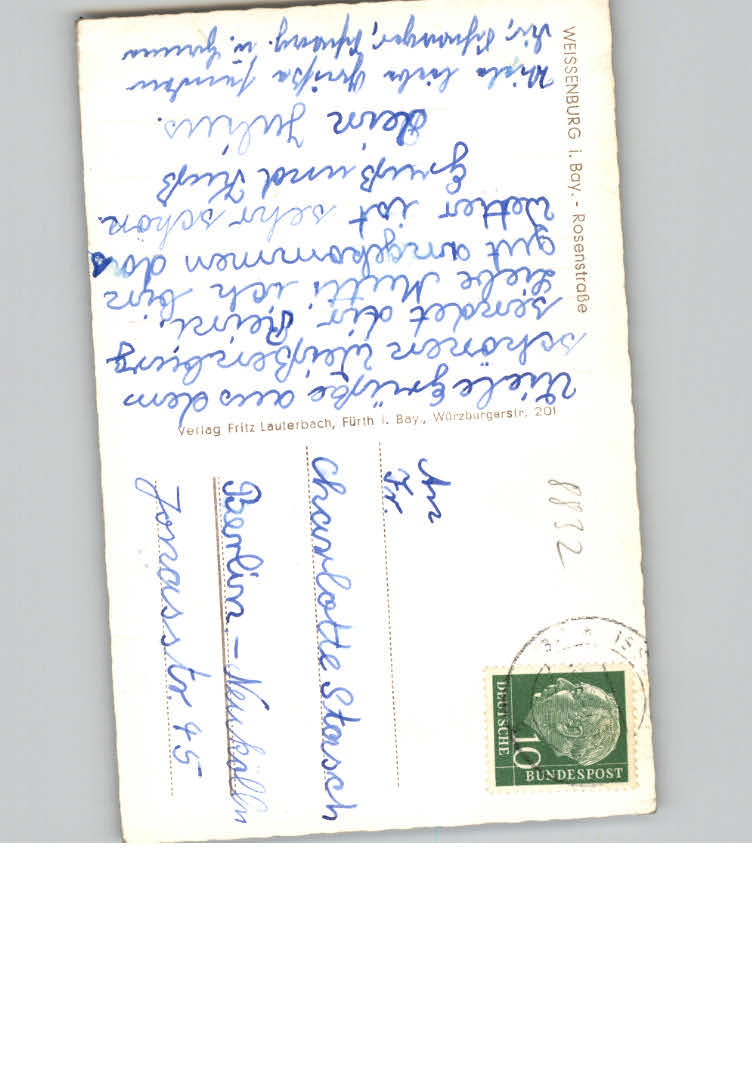 WEISSENBURG i. Bay. - Rosenstraße
Viele Grüße aus dem
schönen Weißenburg
sendet dir
Liebe Mutti ich bin
gut angekommen das
Wetter ist sehr schön.
Gruß und Kuß
dein Julius.
Viele liebe Grüße senden
Dir, Schwager, Schwäg. u.
Verlag Fritz Lauterbach, Fürth i. Bay., Würzburgerstr. 201
8832
An
Fr.
Charlotte Stasch
Berlin-Neukölln
Jonasstr. 45
DEUTSCHE
BUNDESPOST
10